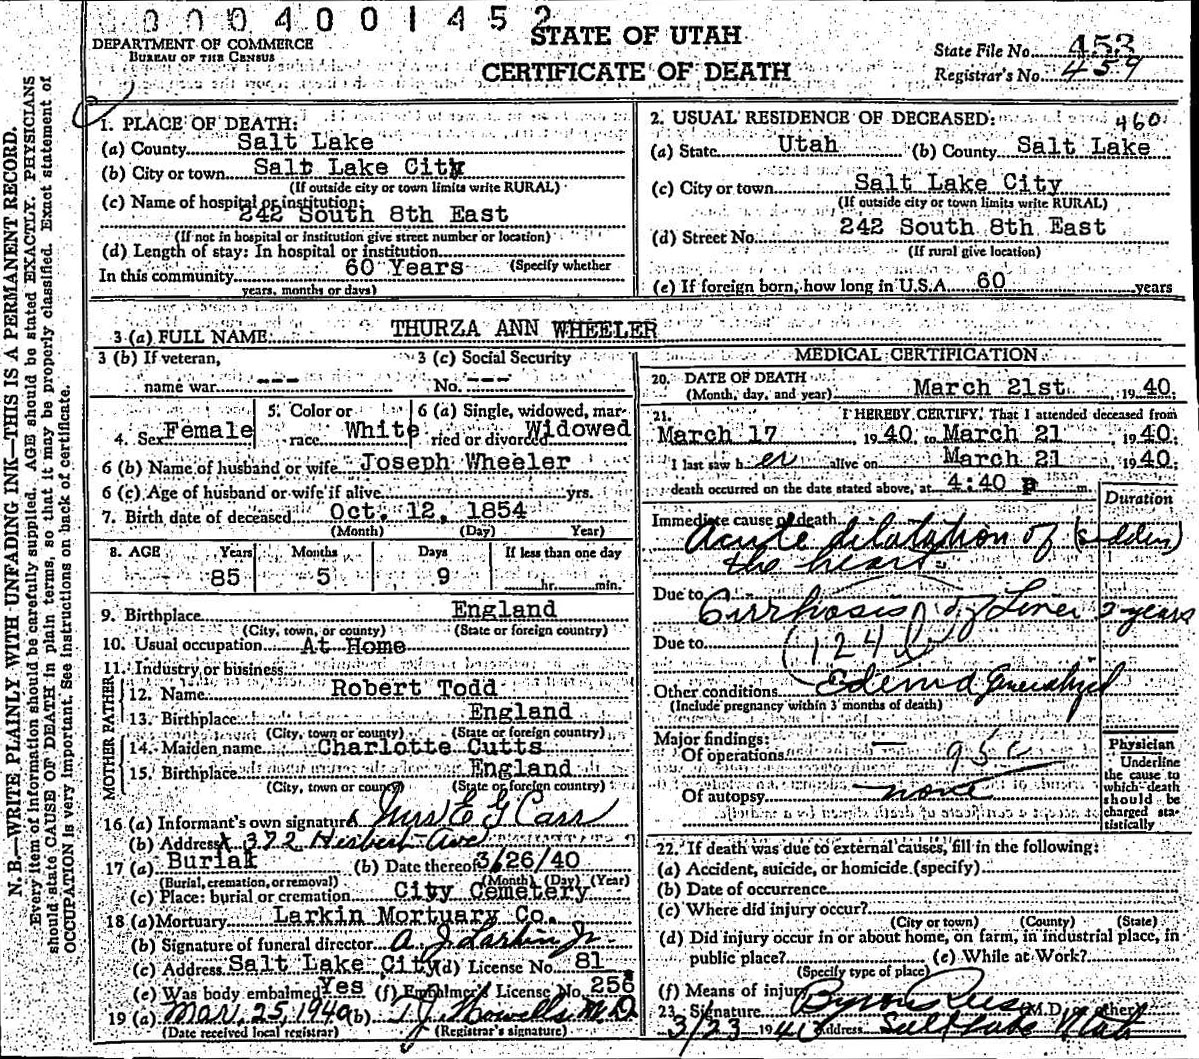 0004001452
DEPARTMENT OF COMMERCE
BUREAU OF THE CENSUS
STATE OF UTAH
CERTIFICATE OF DEATH
State File No. 453
Registrar's No. 459
N. B.—WRITE PLAINLY WITH UNFADING INK—THIS IS A PERMANENT RECORD.
Every item of information should be carefully supplied. AGE should be stated EXACTLY. PHYSICIANS
should state CAUSE OF DEATH in plain terms, so that it may be properly classified. Exact statement of
OCCUPATION is very important. See instructions on back of certificate.
1. PLACE OF DEATH:
(a) County Salt Lake
(b) City or town Salt Lake City
(If outside city or town limits write RURAL)
(c) Name of hospital or institution:
242 South 8th East
(If not in hospital or institution give street number or location)
(d) Length of stay: In hospital or institution
In this community 60 Years (Specify whether
years, months or days)
2. USUAL RESIDENCE OF DECEASED: 460
(a) State Utah (b) County Salt Lake
(c) City or town Salt Lake City
(If outside city or town limits write RURAL)
(d) Street No. 242 South 8th East
(If rural give location)
(e) If foreign born, how long in U.S.A. 60 years
3 (a) FULL NAME THURZA ANN WHEELER
3 (b) If veteran,
name war ---
3 (c) Social Security
No. ---
4. Sex Female
5. Color or
race White
6 (a) Single, widowed, mar-
ried or divorced Widowed
6 (b) Name of husband or wife Joseph Wheeler
6 (c) Age of husband or wife if alive yrs.
7. Birth date of deceased Oct. 12, 1854
(Month) (Day) Year)
8. AGE Years Months Days If less than one day
85 5 9 hr. min.
9. Birthplace England
(City, town, or county) (State or foreign country)
10. Usual occupation At Home
11. Industry or business
FATHER
12. Name Robert Todd
13. Birthplace England
(City, town or county) (State or foreign country)
MOTHER
14. Maiden name Charlotte Cutts
15. Birthplace England
(City, town or county) (State or foreign country)
16 (a) Informant's own signature Mrs E G Carr
(b) Address 372 Ave
17 (a) Burial (b) Date thereof 3/26/40
(Burial, cremation, or removal) (Month) (Day) (Year)
(c) Place: burial or cremation City Cemetery
18 (a) Mortuary Larkin Mortuary Co.
(b) Signature of funeral director A. J. Larkin Jr.
(c) Address Salt Lake City (d) License No. 81
(e) Was body embalmed Yes (f) Embalmer's License No. 256
19 (a) Mar. 25, 1940 (b) T.J. Howells M.D.
(Date received local registrar) (Registrar's signature)
MEDICAL CERTIFICATION
20. DATE OF DEATH
(Month, day, and year) March 21st 1940.
21. I HEREBY CERTIFY, That I attended deceased from
March 17, 1940, to March 21 1940;
I last saw h er alive on March 21 1940;
death occurred on the date stated above, at 4:40 p m.
Duration
Immediate cause of death
Acute dilatation of (sudden)
the heart
Due to Cirrhosis of Liver 2 years
Due to (124 b
Other conditions Edema Generalized
(Include pregnancy within 3 months of death)
Major findings:
Of operations — 95c
Of autopsy none
Physician
Underline
the cause to
which death
should be
charged sta-
tistically
22. If death was due to external causes, fill in the following:
(a) Accident, suicide, or homicide (specify)
(b) Date of occurrence
(c) Where did injury occur?
(City or town) (County) (State)
(d) Did injury occur in or about home, on farm, in industrial place, in
public place? (e) While at Work?
(Specify type of place)
(f) Means of injury
23. Signature Byron Rees (M.D. or other)
3/23 1940 Address Salt Lake Utah